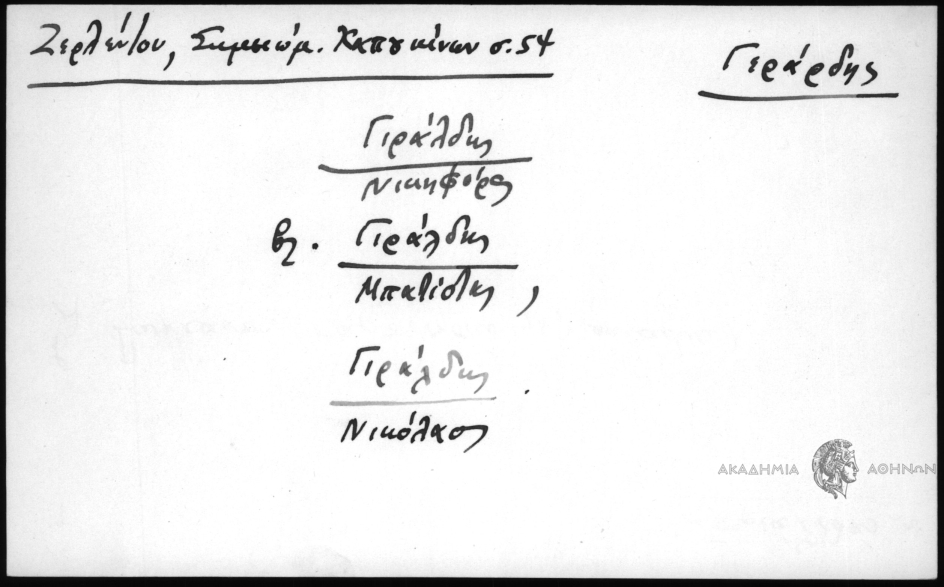 Ζερλέντου, Σημειώμ. Καπουκίνων σ. 54
Γεράρδης
Γιράλδης
Νικηφόρος
βλ. Γιράλδης
Μπατίστας,
Γιράλδης
Νικόλαος
ΑΚΑΔΗΜΙΑ ΑΘΗΝΩΝ